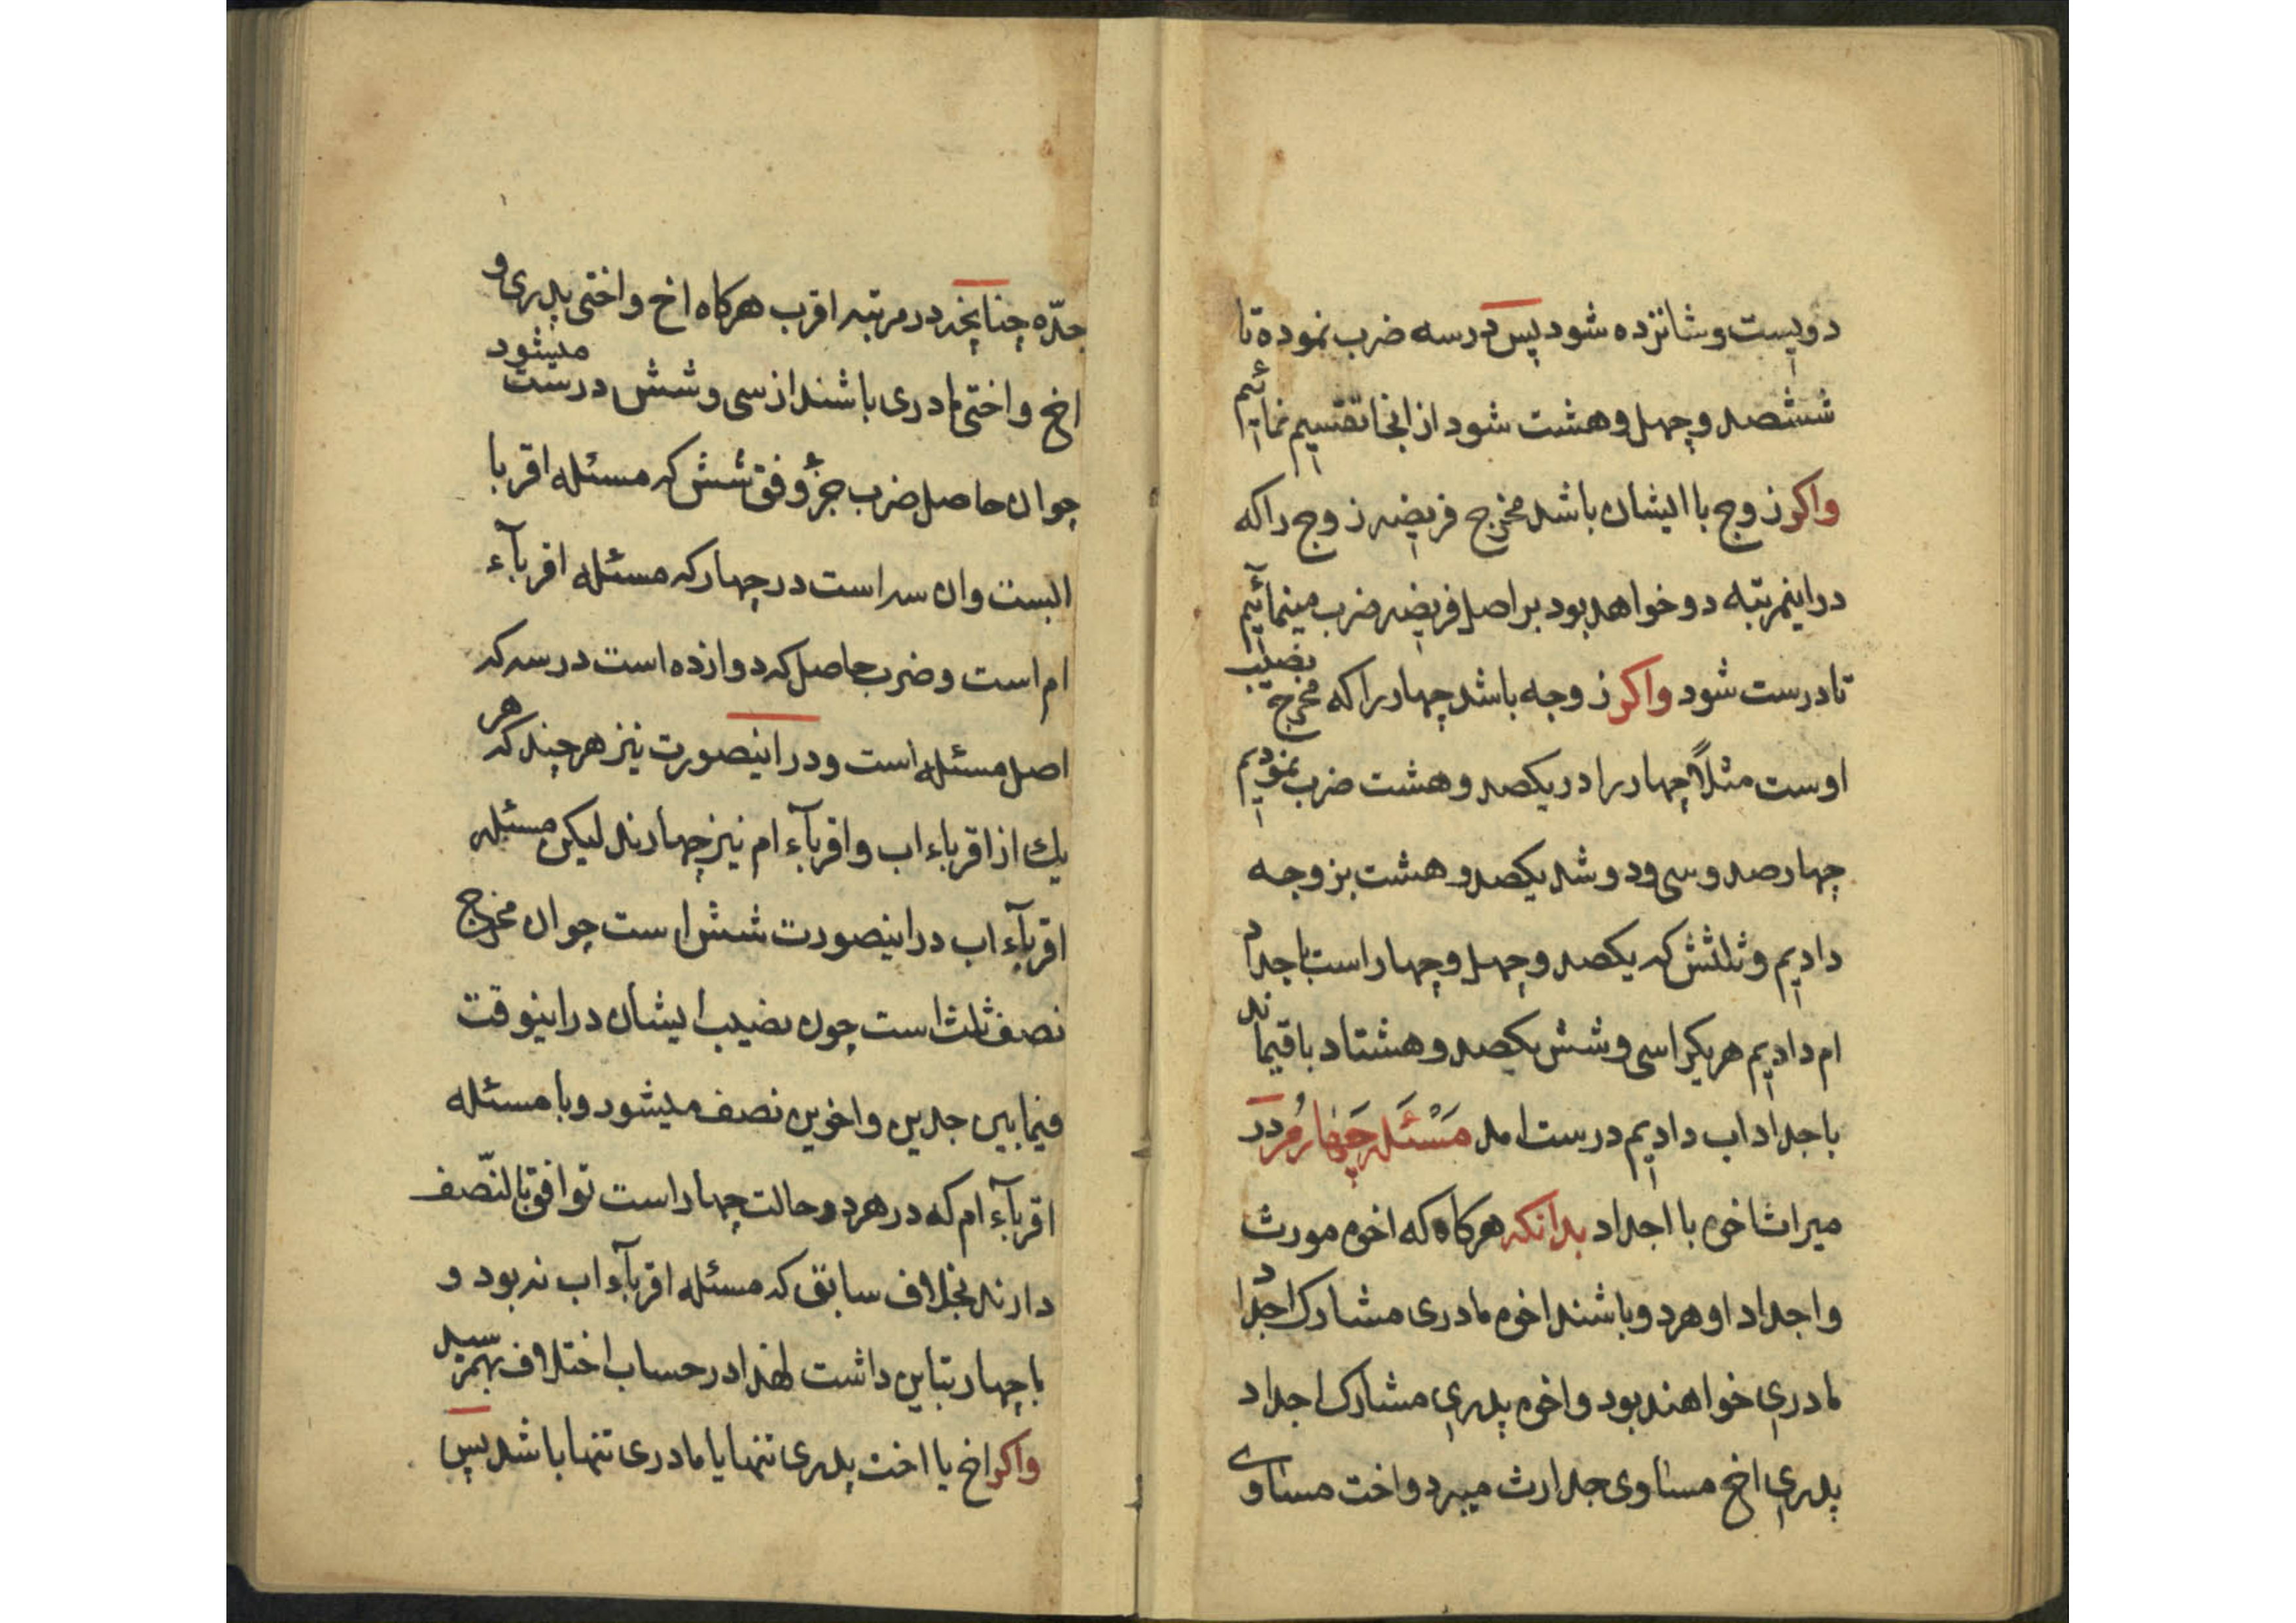 دویست و شانزده شود پس درسه ضرب نموده تا
ششصد و چهل و هشت شود از انجا تقسیم نمائیم
واکر زوج با ایشان باشد مخرج فریضه زوج را که
در اینمرتبه دو خواهد بود بر اصل فریضه ضرب مینمائیم
تا درست شود واکر زوجه باشد چهار را که مخرج نصیب
اوست مثلاً چهار را در یکصد و هشت ضرب نمودیم
چهارصد و سی و دو شد یکصد و هشت بزوجه
دادیم و ثلثش که یکصد و چهل و چهار است باجداد
ام دادیم هر یکرا سی و شش یکصد و هشتاد باقیماند
باجداد اب دادیم درست امد مَسْئَله چَهارُم دَر
میراث اخوه با اجداد بدانکه هرکاه که اخوه مورث
و اجداد او هردو باشند اخوه مادری مشارک اجداد
مادری خواهند بود و اخوه پدری مشارک اجداد
پدری اخ مساوی جد ارث میبرد و اخت مساوی
جدّه چنانچه در مرتبه اقرب هرکاه اخ و اختی پدری و
اخ و اختی مادری باشند از سی و شش درست میشود
چو ان حاصل ضرب جزؤ وفق شش که مسئله اقربا
ابست وان سه است در چهار که مسئله اقربآء
ام است و ضرب حاصل که دوازده است در سه که
اصل مسئله است و در اینصورت نیز هرچند که هر
یك از اقرباء اب و اقربآء ام نیز چهارند لیکن مسئله
اقربآء اب در اینصورت شش است چو ان مخرج
نصف ثلث است چون نصیب ایشان در اینوقت
فیما بین جدین و اخوین نصف میشود و با مسئله
اقربآء ام که در هر دو حالت چهار است توافق بالنّصف
دارند بخلاف سابق که مسئله اقربآء اب نه بود و
با چهار تباین داشت لهذا در حساب اختلاف بهمرسید
واکر اخ یا اخت پدری تنها یا مادری تنها باشد پس